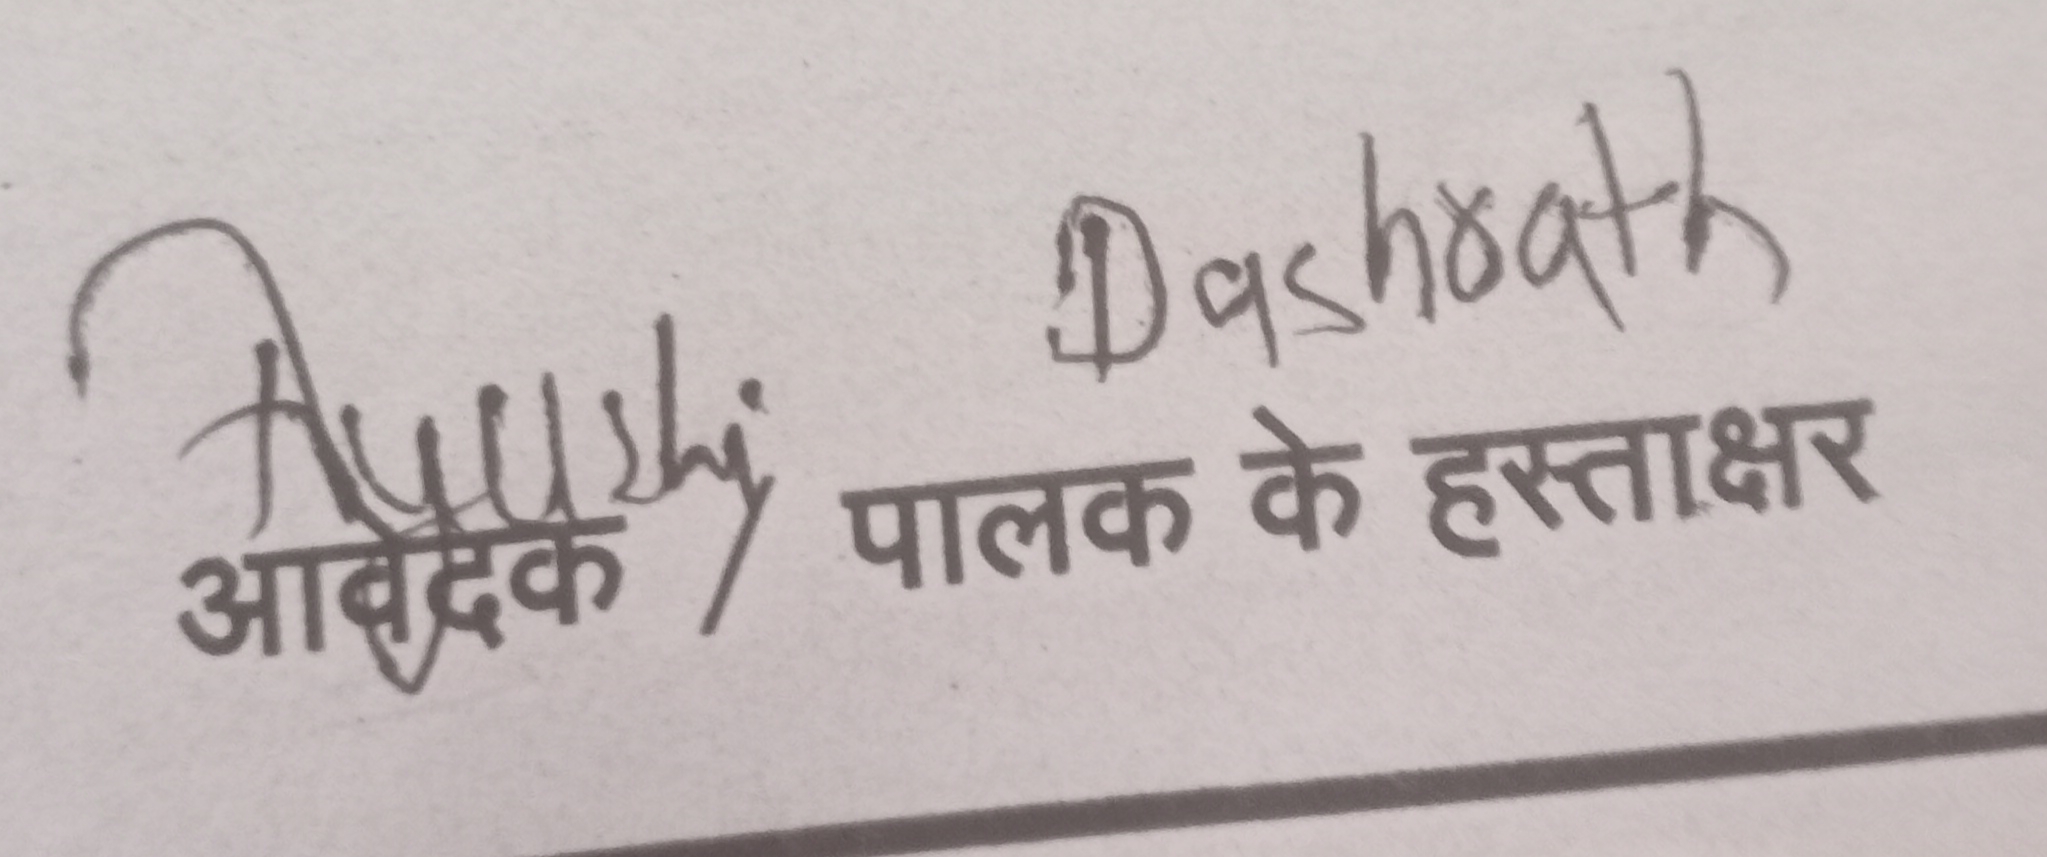 Ayushi Dashrath
आवेदक पालक के हस्ताक्षर